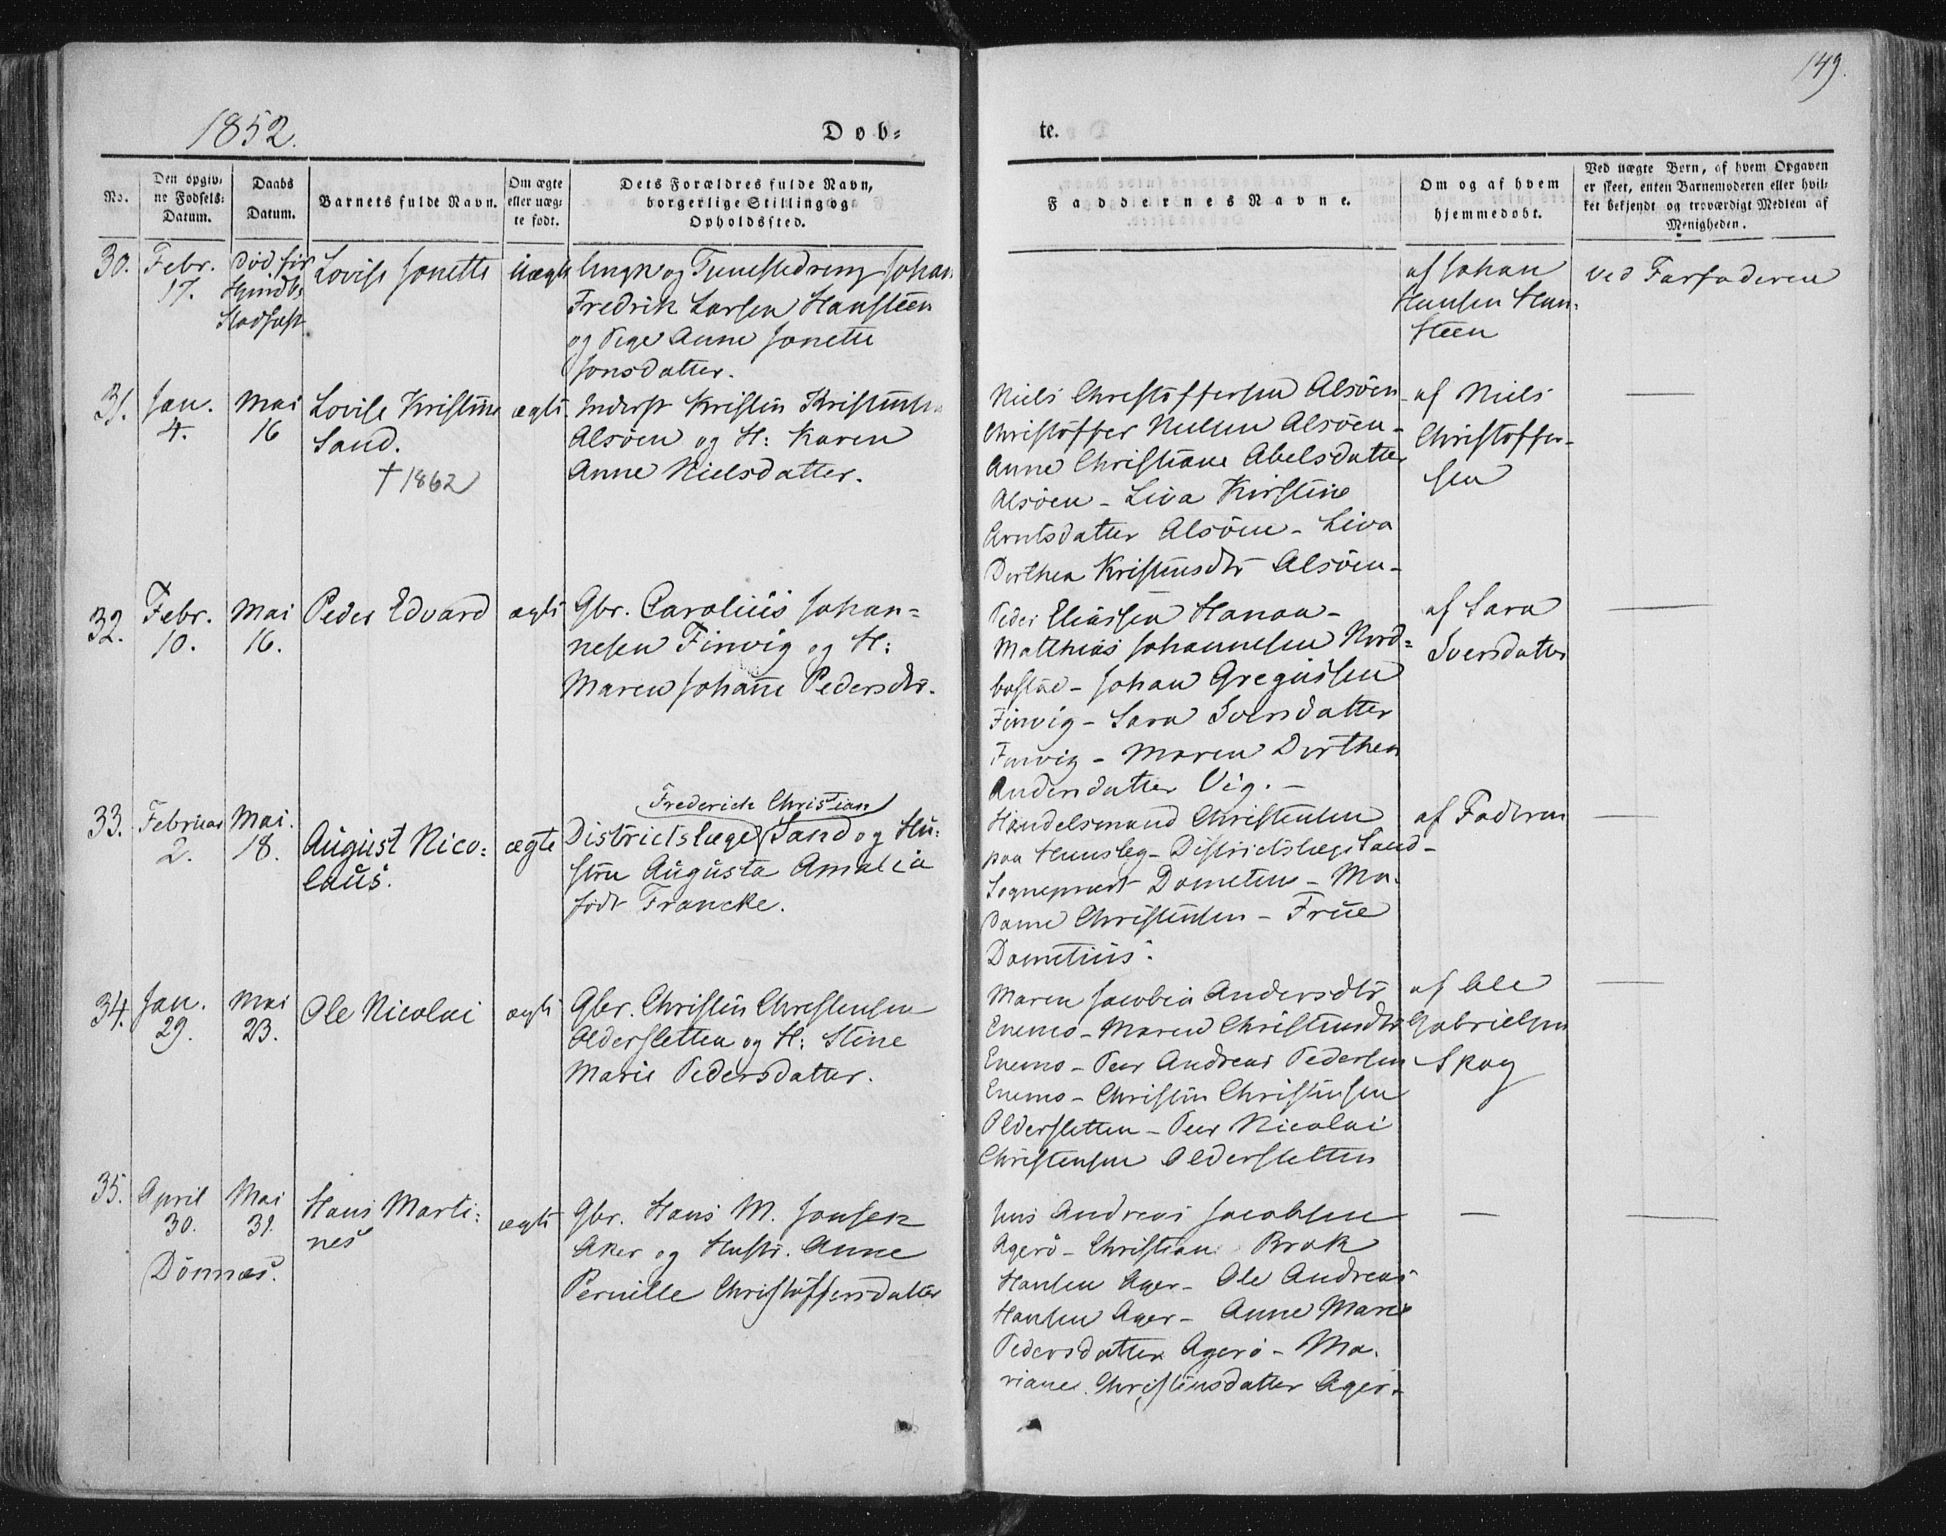 149.
1852.
Døb-
te.
No.
Den opgiv-
ne Fødsels-
Datum.
Daabs
Datum.
Barnets fulde Navn.
Om ægte
eller uæg-
te født.
Dets Forældres fulde Navn,
borgerlige Stilling og
Opholdssted.
Faddernes Navne.
Om og af hvem
hjemmedøbt.
Ved uægte Børn, af hvem Opgaven
er skeet, enten Barnemoderen eller hvil-
ket bekjendt og troværdigt Medlem af
Menigheden.
30.
Febr.
17.
Død før
Stadfæst
Lovise Jonette
Uægte
Ungk og Johan
Fredrik Larsen Hansteen
og Pige Anne Jonette
Jonsdatter.
af Johan
Hansen Han-
steen
ved Farfaderen
31.
Jan.
4.
Mai
16
Lovise Kristine
Sand.
† 1862
ægte
Inderst Kristen Kristensen
Alsöen og H: Karen
Anne Nielsdatter.
Niels Christoffersen Alsöen
Christoffer Nielsen Alsöen -
Anne Christiane Abelsdatter
Alsöen - Liva Kirstine
Arntsdatter Alsöen - Liva
Dorthea Kristensdtr Alsöen -
af Niels
Christoffer-
sen
—
32.
Febr.
10.
Mai
16.
Peder Edvard
ægte
Gbr. Carolius Johan-
nesen Finvig og H:
Maren Johanne Pedersdtr.
Peder Eliassen Hanaa -
Matthias Johannesen Nord-
bostad - Johan Gregussen
Finvig - Sara Iversdatter
Finvig - Maren Dorthea
Andersdatter Vig. -
af Sara
Iversdatter
—
33.
Februar
2.
Mai.
18.
August Nico-
laus.
ægte
Frederick Christian
Districtslæge Sand og Hu-
stru Augusta Amalia
født Francke.
Handelsmand Christensen
paa - Districtslæge Sand -
Sognepræst Dometius - Ma-
dame Christensen - Frue
Dometius.
af Faderen
—
34.
Jan.
29.
Mai
23.
Ole Nicolai
ægte
Gbr. Christen Christensen
Oldersletten og H: Stine
Marie Pedersdatter.
Maren Jacobia Andersdtr
Enemo - Maren Christensdtr
Enemo - Peer Andreas Pedersen
Enemo - Christen Christensen
Oldersletten - Peer Nicolai
Christensen Oldersletten
af Ole
Gabrielsen
Skog
—
35.
April
30.
Mai
31.
Dönnæs.
Hans Marti-
nes
ægte
Gbr. Hans M. Jonsen
Aker og Hustr. Anne
Pernille Christoffersdatter
Jens Andreas Jacobsen
Agerö - Christian Brok
Hansen Ager - Ole Andreas
Hansen Ager - Anne Marie
Pedersdatter Agerö - Ma-
riane Christensdatter Ager.
—
—